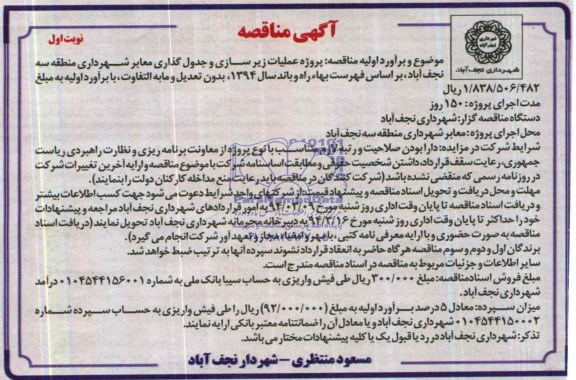 آگهی مناقصه
نوبت اول
شهرداری نجف آباد
موضوع و برآورد اولیه مناقصه: پروژه عملیات زیر سازی و جدول گذاری معابر شهرداری منطقه سه
نجف آباد، بر اساس فهرست بهاء راه و باند سال ۱۳۹۴، بدون تعدیل و مابه التفاوت، با برآورد اولیه به مبلغ
۱/۸۳۸/۵۰۶/۴۸۲ ریال
مدت اجرای پروژه: ۱۵۰ روز
دستگاه مناقصه گزار: شهرداری نجف آباد
محل اجرای پروژه: معابر شهرداری منطقه سه نجف آباد
شرایط شرکت در مزایده: دارا بودن صلاحیت و رتبه لازم متناسب با نوع پروژه از معاونت برنامه ریزی و نظارت راهبردی ریاست
جمهوری، رعایت سقف قرارداد، داشتن شخصیت حقوقی و مطابقت اساسنامه شرکت با موضوع مناقصه و ارایه آخرین تغییرات شرکت
در روزنامه رسمی که منقضی نشده باشد (شرکت کنندگان در مناقصه باید رعایت منع مداخله کارکنان دولت را بنمایند).
مهلت و محل دریافت و تحویل اسناد مناقصه و پیشنهاد قیمت: از شرکتهای واجد شرایط دعوت می شود جهت کسب اطلاعات بیشتر
و دریافت اسناد مناقصه تا پایان وقت اداری روز شنبه مورخ ۹۴/۰۷/۰۹ به امور قراردادهای شهرداری نجف آباد مراجعه و پیشنهادات
خود را حداکثر تا پایان وقت اداری روز شنبه مورخ ۹۴/ /۱۶ به دبیرخانه محرمانه شهرداری نجف آباد تحویل نمایند (دریافت اسناد
مناقصه به صورت حضوری و با ارایه معرفی نامه کتبی، با مهر و امضاء مجاز و تعهد آور شرکت انجام می گیرد).
برندگان اول و دوم و سوم مناقصه هر گاه حاضر به انعقاد قرارداد نشوند سپرده آنها به ترتیب ضبط خواهد شد.
سایر اطلاعات و جزئیات مربوط به مناقصه در اسناد مناقصه مندرج است.
مبلغ فروش اسناد مناقصه: مبلغ ۳۰۰/۰۰۰ ریال طی فیش واریزی به حساب سیبا بانک ملی به شماره ۰۱۰۴۵۴۴۱۵۶۰۰۱ درآمد
شهرداری نجف آباد.
میزان سپرده: معادل ۵ درصد برآورد اولیه به مبلغ (۹۲/۰۰۰/۰۰۰) ریال را طی فیش واریزی به حساب سپرده شماره
۰۱۰۴۵۴۴۱۵۰۰۰۲ شهرداری نجف آباد و یا معادل آن را ضمانتنامه معتبر بانکی ارایه نمایند.
تذکر: شهرداری نجف آباد در رد یا قبول یک یا کلیه پیشنهادات مختار می باشد.
مسعود منتظری - شهردار نجف آباد